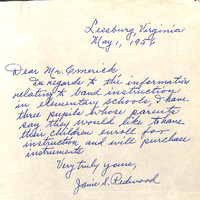 Leesburg, Virginia
May 1, 1956
Dear Mr. Emerick
In regards to the information
relating to band instruction
in elementary schools, I have
three pupils whose parents
say they would like to have
their children enroll for
instruction and will purchase
instruments
Very truly yours,
Janie S. Redwood